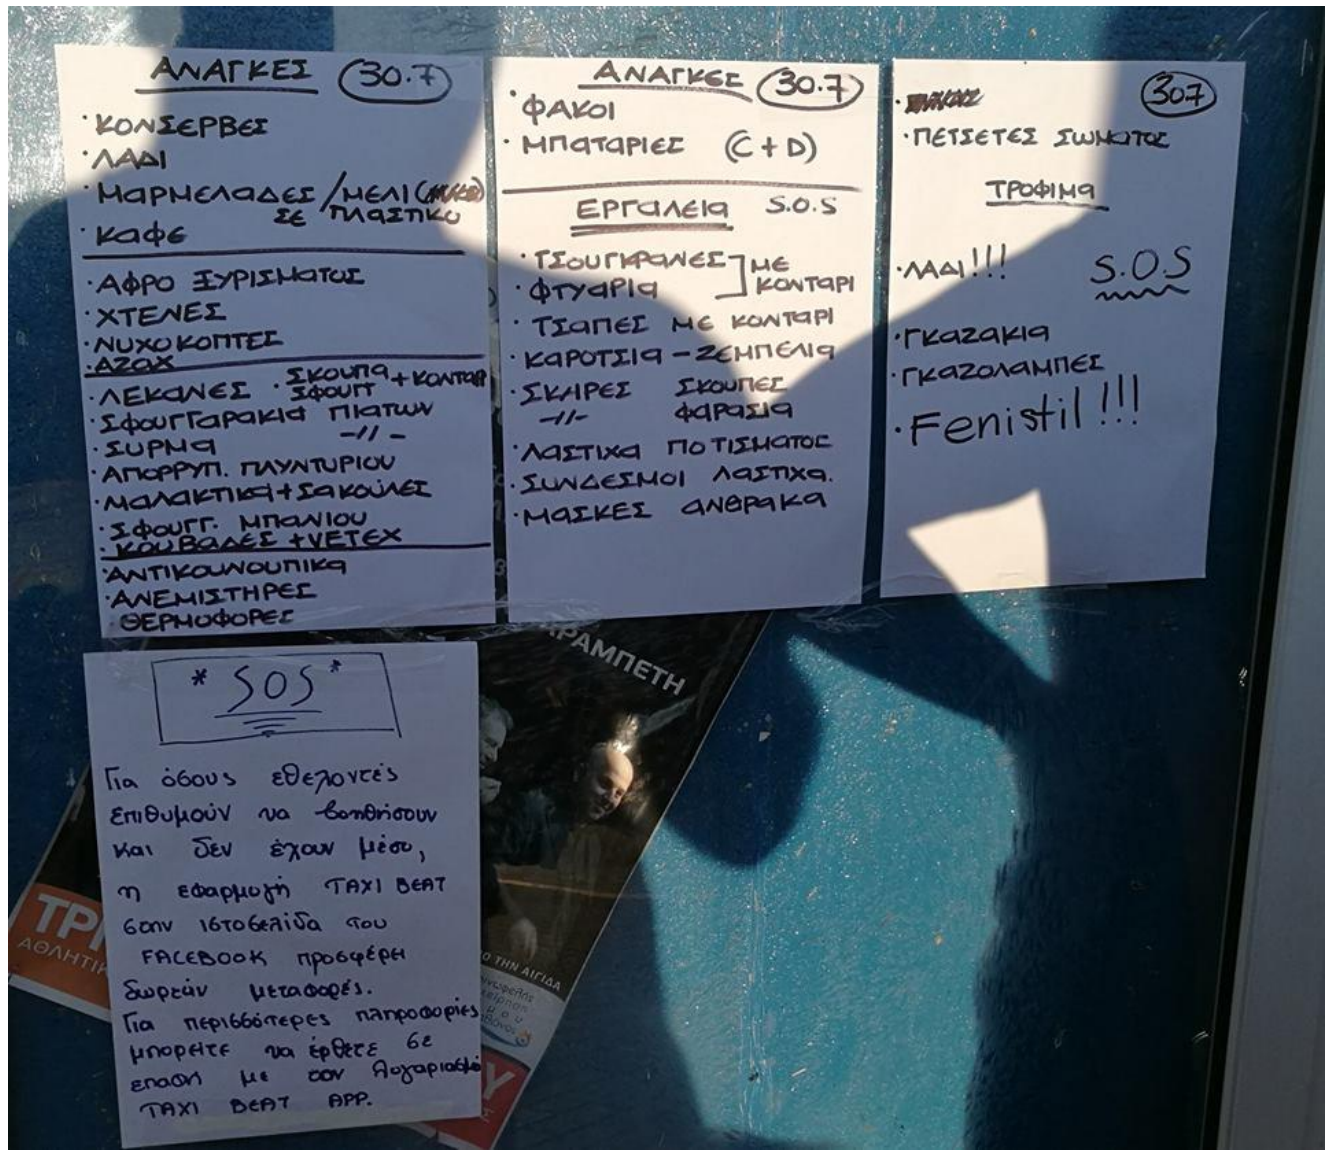 ΑΝΑΓΚΕΣ 30.7
· ΚΟΝΣΕΡΒΕΣ
· ΛΑΔΙ
· ΜαΡΜΕΛαΔΕΣ / ΜΕΛΙ
ΣΕ ΠΛαΣΤΙΚΟ
· ΚαΦΕ
· ΑΦΡΟ ΞΥΡΙΣΜαΤΟΣ
· ΧΤΕΝΕΣ
· ΝΥΧΟΚΟΠΤΕΣ
· ΑΖαΧ
· ΛΕΚΑΝΕΣ · ΣΚΟΥΠα
ΣΦΟΥΓΓ + ΚΟΝΤαΡ
· ΣΦΟΥΓΓαΡαΚΙα ΠΙαΤΩΝ
· ΣΥΡΜα -//-
· ΑΠΟΡΡΥΠ. ΠΛΥΝΤΥΡΙΟΥ
· ΜαΛαΚΤΙΚα + ΣαΚΟΥΛΕΣ
· ΣΦΟΥΓΓ. ΜΠαΝΙΟΥ
· ΚΟΥΒαΔΕΣ + VETEX
· ΑΝΤΙΚΟΥΝΟΥΠΙΚα
· ΑΝΕΜΙΣΤΗΡΕΣ
· ΘΕΡΜΟΦΟΡΕΣ
ΑΝΑΓΚΕΣ 30.7
· ΦΑΚΟΙ
· ΜΠαΤαΡΙΕΣ (C + D)
ΕΡΓαΛΕΙα S.O.S
· ΤΣΟΥΓΚΡαΝΕΣ ΜΕ
· ΦΤΥαΡΙα ΚΟΝΤαΡΙ
· ΤΣαΠΕΣ ΜΕ ΚΟΝΤαΡΙ
· ΚαΡΟΤΣΙα - ΖΕΜΠΕΛΙα
· ΣΚΛΙΡΕΣ ΣΚΟΥΠΕΣ
-//- ΦαΡαΣΙα
· ΛαΣΤΙΧα ΠΟΤΙΣΜαΤΟΣ
· ΣΥΝΔΕΣΜΟΙ ΛαΣΤΙΧα.
· ΜαΣΚΕΣ αΝΘΡαΚα
307
· ΠΕΤΣΕΤΕΣ ΣΩΜαΤΟΣ
ΤΡΟΦΙΜα
· ΛΑΔΙ!!! S.O.S
· ΓΚαΖαΚΙα
· ΓΚαΖΟΛαΜΠΕΣ
· Fenistil!!!
* SOS *
Για όσους εθελοντές
επιθυμούν να βοηθήσουν
και δεν έχουν μέσο,
η εφαρμογή TAXI BEAT
στην ιστοσελίδα του
FACEBOOK προσφέρει
δωρεάν μεταφορές.
Για περισσότερες πληροφορίες
μπορείτε να έρθετε σε
επαφή με τον λογαριασμό
TAXI BEAT APP.
ΑΡΑΜΠΕΤΗ
ΤΡΙ
ΑΘΛΗΤΙΚ
Ο ΤΗΝ ΑΙΓΙΔΑ